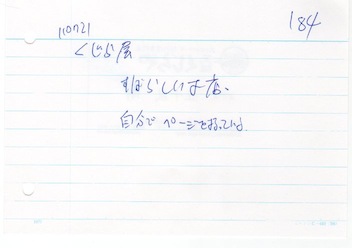 110721
184
くじら屋
すばらしいお店。
自分でページをもっている